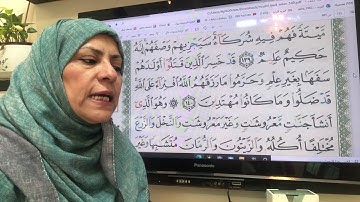 مَّيْتَةً فَهُمْ فِيهِ شُرَكَاءُ سَيَجْزِيهِمْ وَصْفَهُمْ إِنَّهُ
حَكِيمٌ عَلِيمٌ ١٣٩ قَدْ خَسِرَ الَّذِينَ قَتَلُوا أَوْلَادَهُمْ
سَفَهًا بِغَيْرِ عِلْمٍ وَحَرَّمُوا مَا رَزَقَهُمُ اللَّهُ افْتِرَاءً عَلَى اللَّهِ
قَدْ ضَلُّوا وَمَا كَانُوا مُهْتَدِينَ ١٤٠ وَهُوَ الَّذِي
أَنشَأَ جَنَّاتٍ مَّعْرُوشَاتٍ وَغَيْرَ مَعْرُوشَاتٍ وَالنَّخْلَ وَالزَّرْعَ
مُخْتَلِفًا أُكُلُهُ وَالزَّيْتُونَ وَالرُّمَّانَ مُتَشَابِهًا وَغَيْرَ
Panasonic